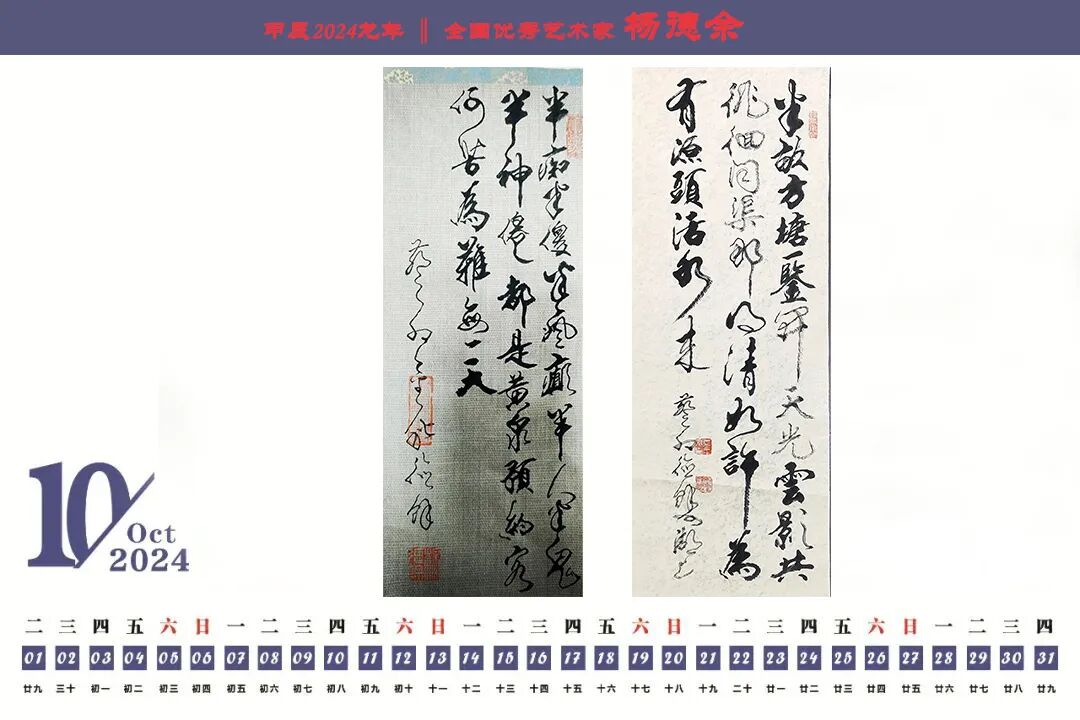 甲辰2024龙年 ‖ 全国优秀艺术家 杨德余
半痴半傻半瘋癲半人半鬼
半神僊都是黄泉預約客
何苦為難每一天
半畝方塘一鑒開天光雲影共
徘徊問渠那得清如許為
有源頭活水來
10
Oct
2024
二 三 四 五 六 日 一 二 三 四 五 六 日 一 二 三 四 五 六 日 一 二 三 四 五 六 日 一 二 三 四
01 02 03 04 05 06 07 08 09 10 11 12 13 14 15 16 17 18 19 20 21 22 23 24 25 26 27 28 29 30 31
廿九 三十 初一 初二 初三 初四 初五 初六 初七 初八 初九 初十 十一 十二 十三 十四 十五 十六 十七 十八 十九 二十 廿一 廿二 廿三 廿四 廿五 廿六 廿七 廿八 廿九